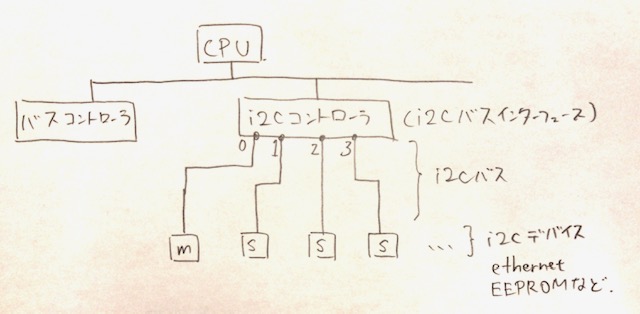 CPU
バスコントローラ
i2Cコントローラ
(i2Cバスインターフェース)
0 1 2 3
i2Cバス
m S S S
... i2Cデバイス
ethernet
EEPROMなど.